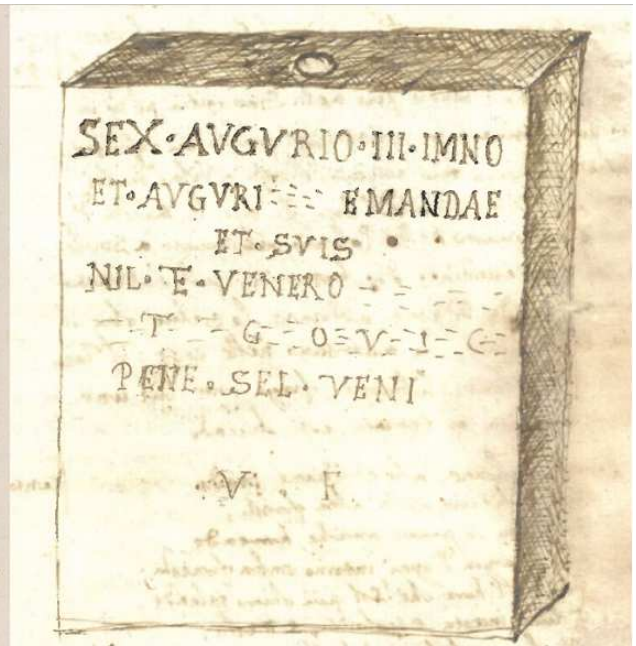 SEX·AVGVRIO·III·IMNO
ET·AVGVRI EMANDAE
ET·SVIS
NIL·E·VENERO
T G O V I C
PENE·SEL·VENI
V· F